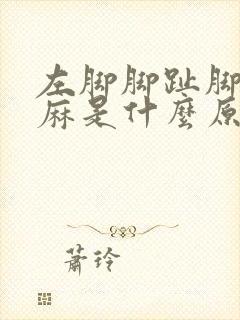 左脚脚趾脚
麻是什麼原
萧玲